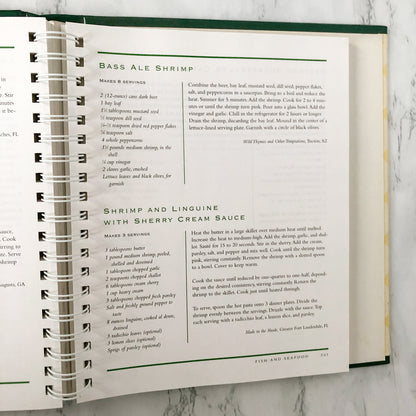 BASS ALE SHRIMP
MAKES 8 SERVINGS
2 (12-ounce) cans dark beer
1 bay leaf
1½ tablespoons mustard seed
½ teaspoon dill seed
teaspoon dried red pepper flakes
¼ teaspoon salt
4 whole peppercorns
1½ pounds medium shrimp, in the
shell
¼ cup vinegar
2 cloves garlic, crushed
Lettuce leaves and black olives, for
garnish
Combine the beer, bay leaf, mustard seed, dill seed, pepper flakes,
salt, and peppercorns in a saucepan. Bring to a boil and reduce the
heat. Simmer for 5 minutes. Add the shrimp. Cook for 2 to 4 min-
utes or until the shrimp turn pink. Pour into a glass bowl. Add the
vinegar and garlic. Chill in the refrigerator for 2 hours or longer.
Drain the shrimp, discarding the bay leaf. Mound in the center of a
lettuce-lined serving plate. Garnish with a circle of black olives.
Wild Thymes and Other Temptations, Tucson, AZ
SHRIMP AND LINGUINE
WITH SHERRY CREAM SAUCE
MAKES 3 SERVINGS
3 tablespoons butter
1 pound medium shrimp, peeled,
shelled and deveined
1 tablespoon chopped garlic
2 teaspoons chopped shallots
6 tablespoons cream sherry
1 cup heavy cream
3 tablespoons chopped fresh parsley
Salt and freshly ground pepper to
taste
8 ounces linguine, cooked al dente,
drained
3 radicchio leaves (optional)
3 lemon slices (optional)
Sprigs of parsley (optional)
Heat the butter in a large skillet over medium heat until melted.
Increase the heat to medium-high. Add the shrimp, garlic, and shal-
lot. Sauté for 15 to 20 seconds. Stir in the sherry. Add the cream,
parsley, salt, and pepper and mix well. Cook until the shrimp turn
pink, stirring constantly. Remove the shrimp with a slotted spoon
to a bowl. Cover to keep warm.
Cook the sauce until reduced by one-quarter to one-half, depend-
ing on the desired consistency, stirring constantly. Return the
shrimp to the skillet. Cook just until heated through.
To serve, spoon the hot pasta onto 3 dinner plates. Divide the
shrimp evenly between the servings. Drizzle with the sauce. Top
each serving with a radicchio leaf, a lemon slice, and parsley.
Made in the Shade, Greater Fort Lauderdale, FL
FISH AND SEAFOOD